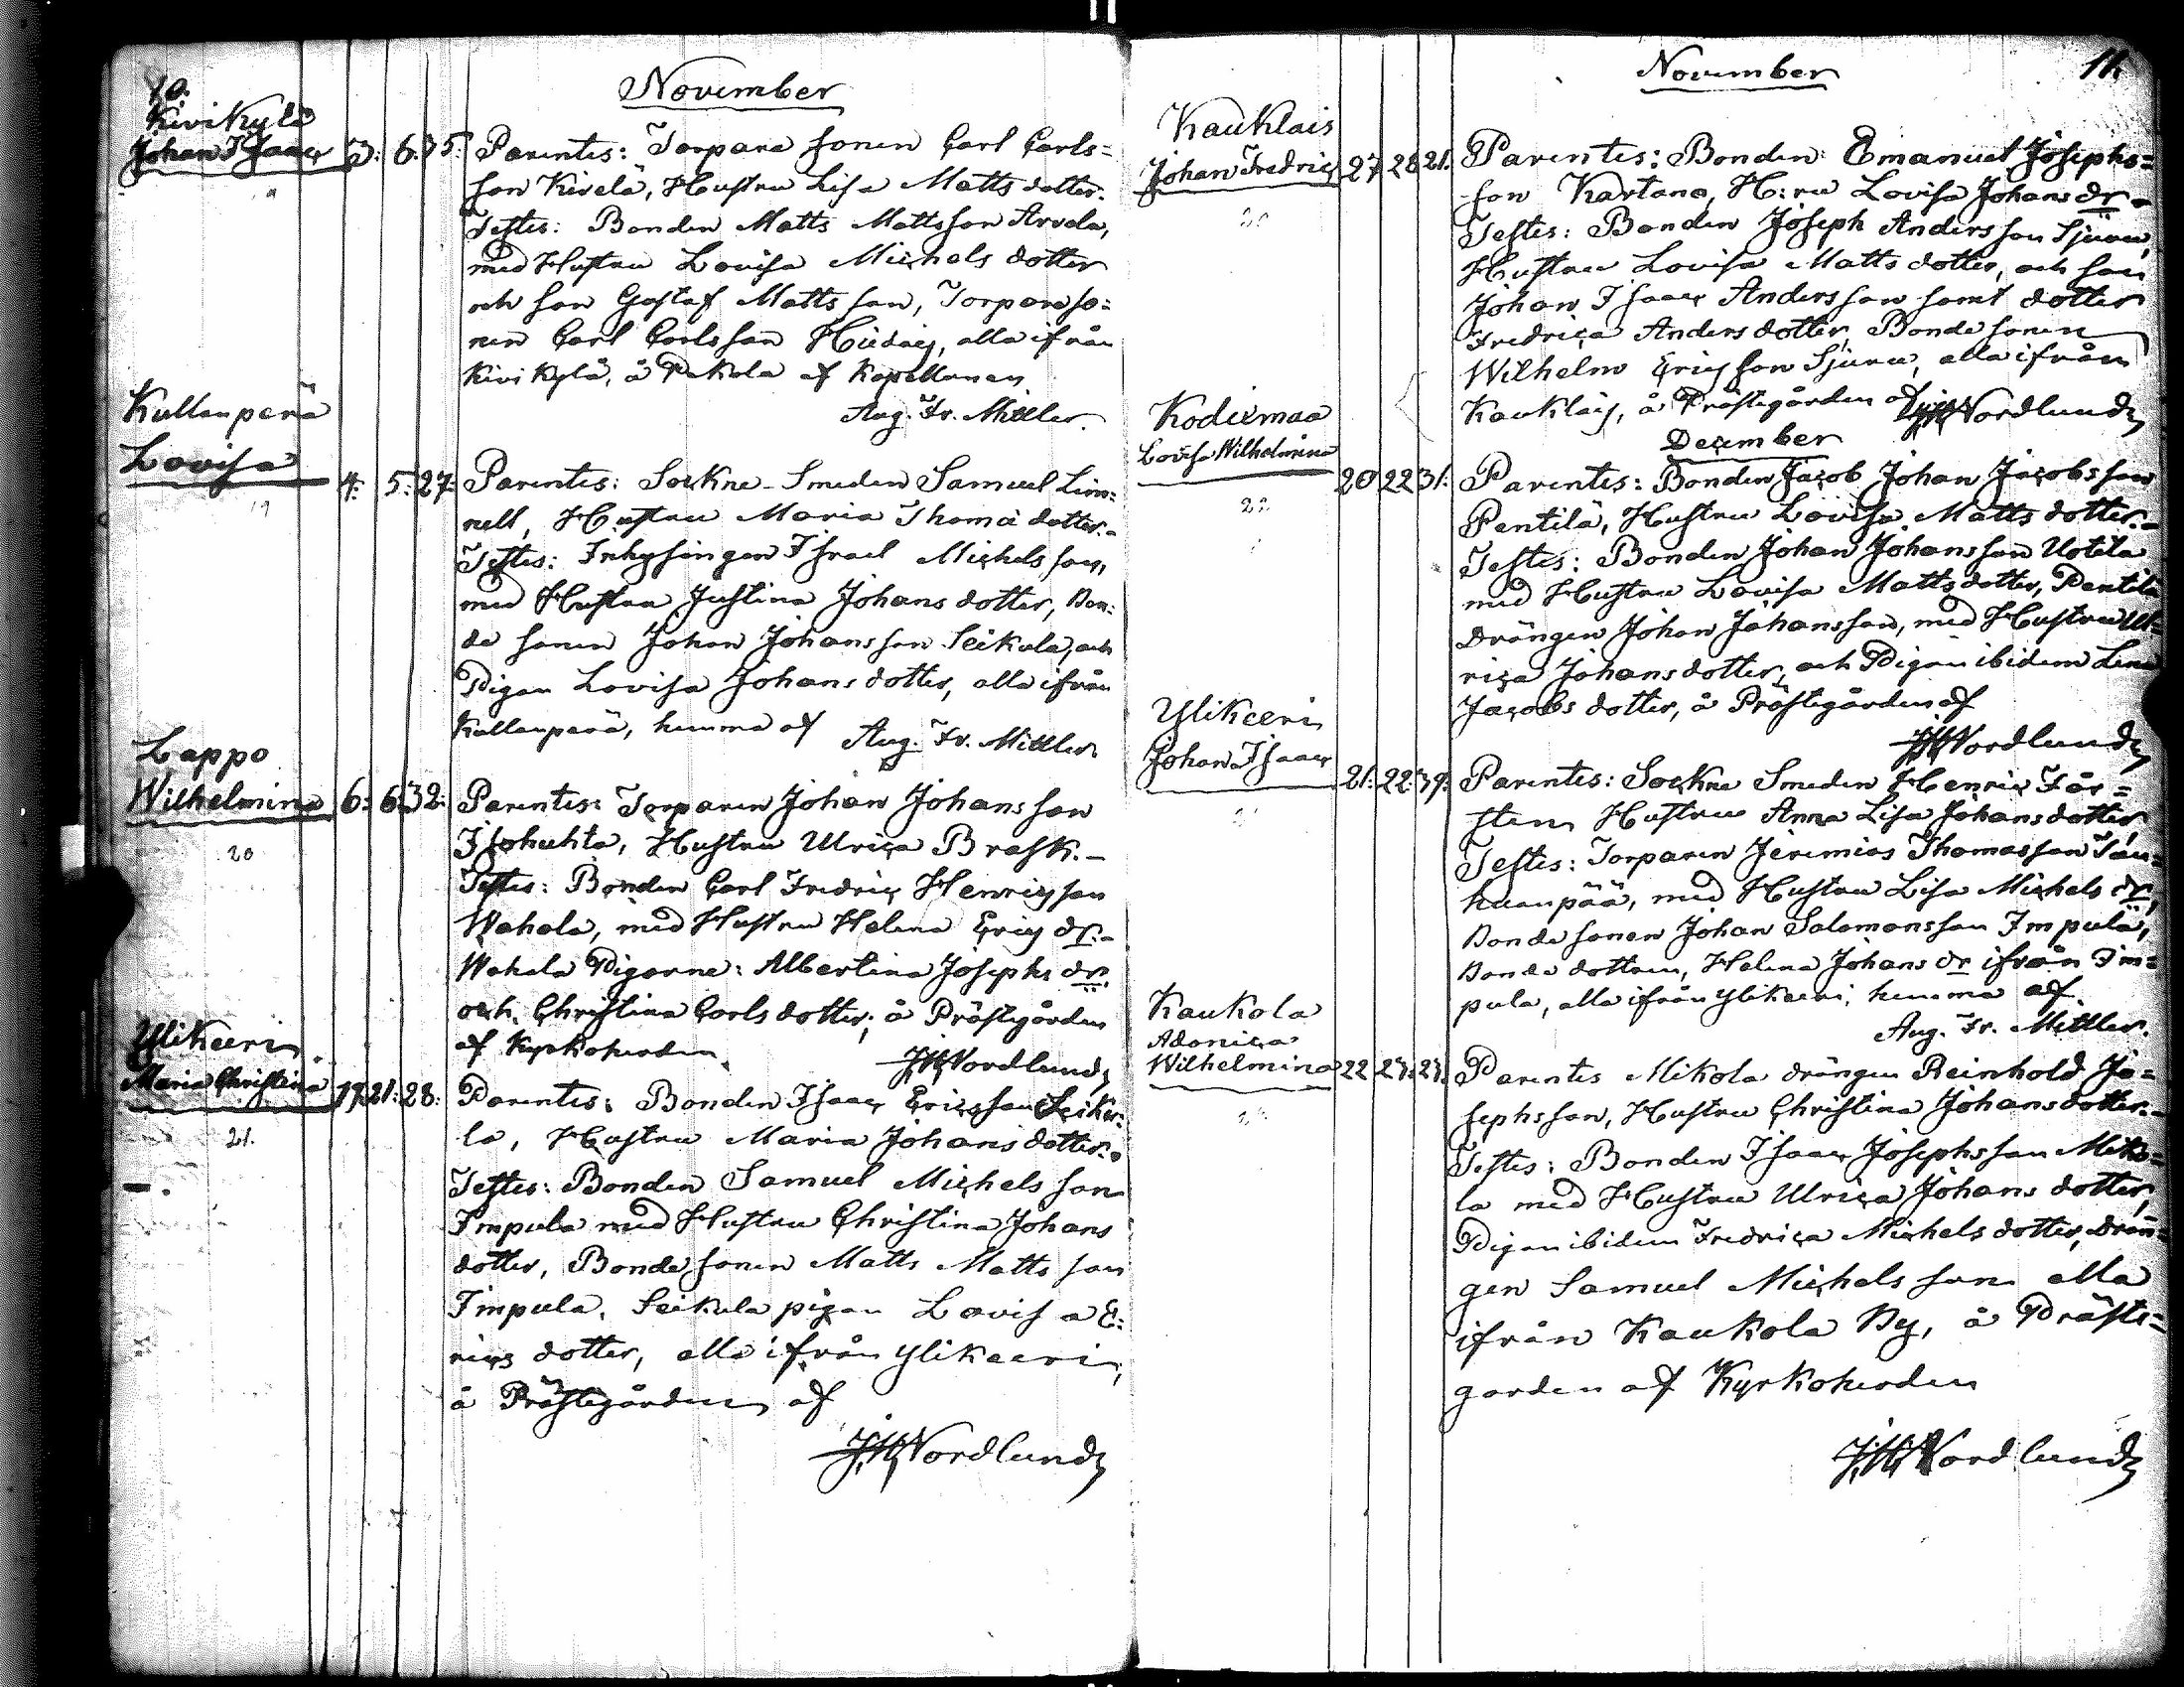 10.
November
Kivikylä
Johan Isaac 5: 6: 35: Parentes: Torpare sonen Carl Carls=
son Kivelä, Hustru Lisa Matts dotter.
Testes: Bonden Matts Mattsson Arvela,
med Hustru Lovisa Michels dotter
och son Gustaf Matts son, Torpareso=
nen Carl Carlsson, alla ifrån
Kivikylä, å Pakola af Kapellanen
Aug. Fr. Mittler.
Kullanperä
Lovisa 4: 5: 27: Parentes: Sockne-Smeden Samuel Lin=
nell, Hustru Maria Thomä dotter.-
19
Testes: Inhysingen Israel Michelsson,
med Hustru Justina Johans dotter, Bon=
de sonen Johan Johansson Seikula, och
Pigan Lovisa Johans dotter, alla ifrån
Kullanperä, hemma af Aug. Fr. Mittler.
Lappo
Wilhelmina 6: 6: 32: Parentes: Torparen Johan Johansson
Isohuhta, Hustru Ulrica Brask.-
20
Testes: Bonden Carl Fredric Henricsson
Wahala, med Hustru Helena Erics dr.-
Wahala Pigorne: Albertina Josephs dr.
och Christina Carls dotter, å Prästgården
af Kyrkoherden JHNordlund
Ylikeeri
Maria Christina 19: 21: 28: Parentes: Bonden Isaac Ericsson Seiku=
la, Hustru Maria Johans dotter.-
21.
Testes: Bonden Samuel Michelsson
Impula med Hustru Christina Johans
dotter, Bonde sonen Matts Matts son
Impula, Seikula pigan Lovisa E=
rics dotter, alla ifrån Ylikeeri,
å Prästegården af
JHNordlund
11.
November
Kauklais
Johan Fredric 27 28 21. Parentes: Bonden Emanuel Josephs=
son Kartano, H:ru Lovisa Johans dr.-
Testes: Bonden Joseph Andersson Sjuru,
Hustru Lovisa Matts dotter, och son
Johan Isaac Andersson samt dotter
Fredrica Anders dotter, Bonde sonen
Wilhelm Ericsson Sjuru, alla ifrån
Kauklais, å Prästegården af JHNordlund
December
Kodiemaa
Lovisa Wilhelmina 20 22 31. Parentes: Bonden Jacob Johan Jacobsson
Pentilä, Hustru Lovisa Matts dotter.-
22
Testes: Bonden Johan Johansson Uotila
med Hustru Lovisa Matts dotter, Pentilä
Drängen Johan Johansson, med Hustru Ul=
rica Johans dotter, och Pigan ibidem Lena
Jacobs dotter, å Prästegården af
JHNordlund
Ylikeeri
Johan Isaac 21. 22. 39: Parentes: Sockne Smeden Henric For=
sten, Hustru Anna Lisa Johans dotter
Testes: Torparen Jeremias Thomasson Tau=
huanpää, med Hustru Lisa Michels dr,
Bonde sonen Johan Salomonsson Impula,
Bonde dottren, Helena Johans dr ifrån Im=
pula, alla ifrån Ylikeeri, hemma af
Aug. Fr. Mittler.
Kaukola
Adonica
Wilhelmina 22 23. 23. Parentes Mikola drängen Reinhold Jo=
sephsson, Hustru Christina Johans dotter.-
Testes: Bonden Isaac Josephsson Miko=
la med Hustru Ulrica Johans dotter,
Pigan ibidem Fredrica Michels dotter, Drän=
gen Samuel Michelsson alla
ifrån Kaukola By, å Präste=
garden af Kyrkoherden
JHNordlund